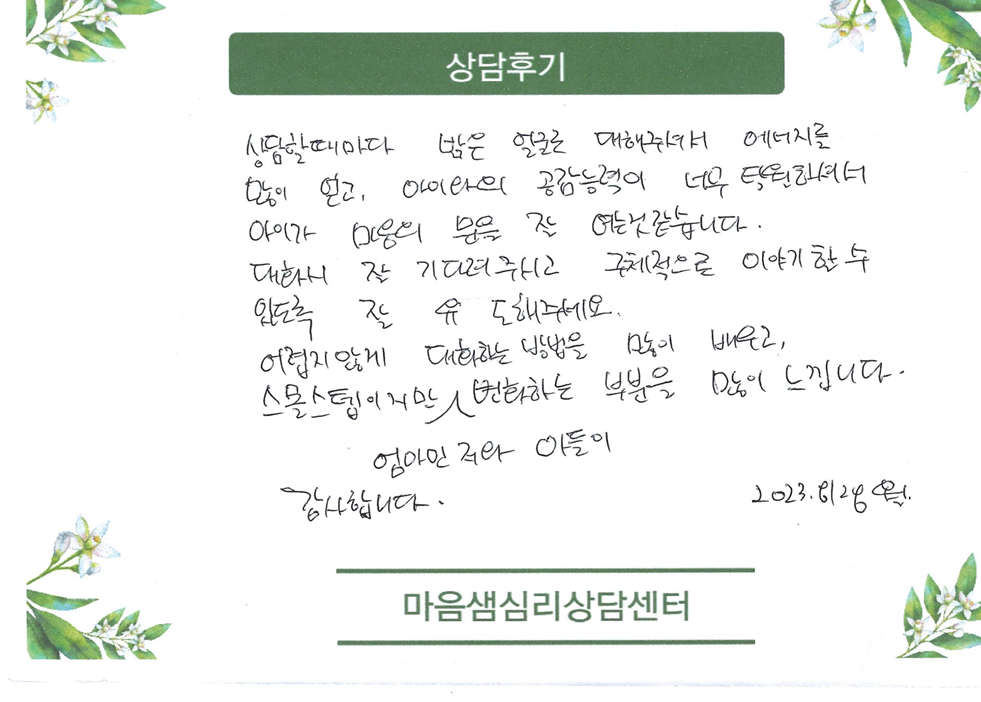 상담후기
상담할때마다 밝은 얼굴로 대해주셔서 에너지를
많이 얻고, 아이와의 공감능력이 너무 탁월하셔서
아이가 마음의 문을 잘 여는것같습니다.
대화시 잘 기다려주시고 구체적으로 이야기할수
있도록 잘 유도해주세요.
어렵지않게 대화하는 방법을 많이 배우고,
스몰스텝이지만 변화하는 부분을 많이 느낍니다.
엄마인 저와 아들이
감사합니다.
2023. 8/28 월.
마음샘심리상담센터